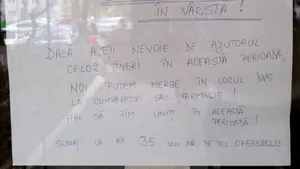 ÎN VÂRSTA !
DACA AVEȚI NEVOIE DE AJUTORUL
CELOR TINERI ÎN ACEASTA PERIOADĂ,
NOI PUTEM MERGE ÎN LOCUL DVS
LA CUMPARATURI SAU FARMACIE !
HAI SĂ FIM UNIȚI ÎN ACEASTĂ
PERIOADĂ !
SUNAȚI LA AP 35 SAU NR DE TEL